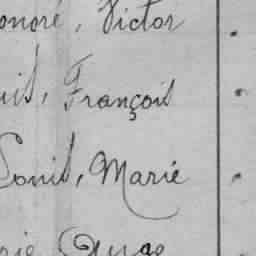 onoré, Victor
uis, François
Louis, Marie
rie